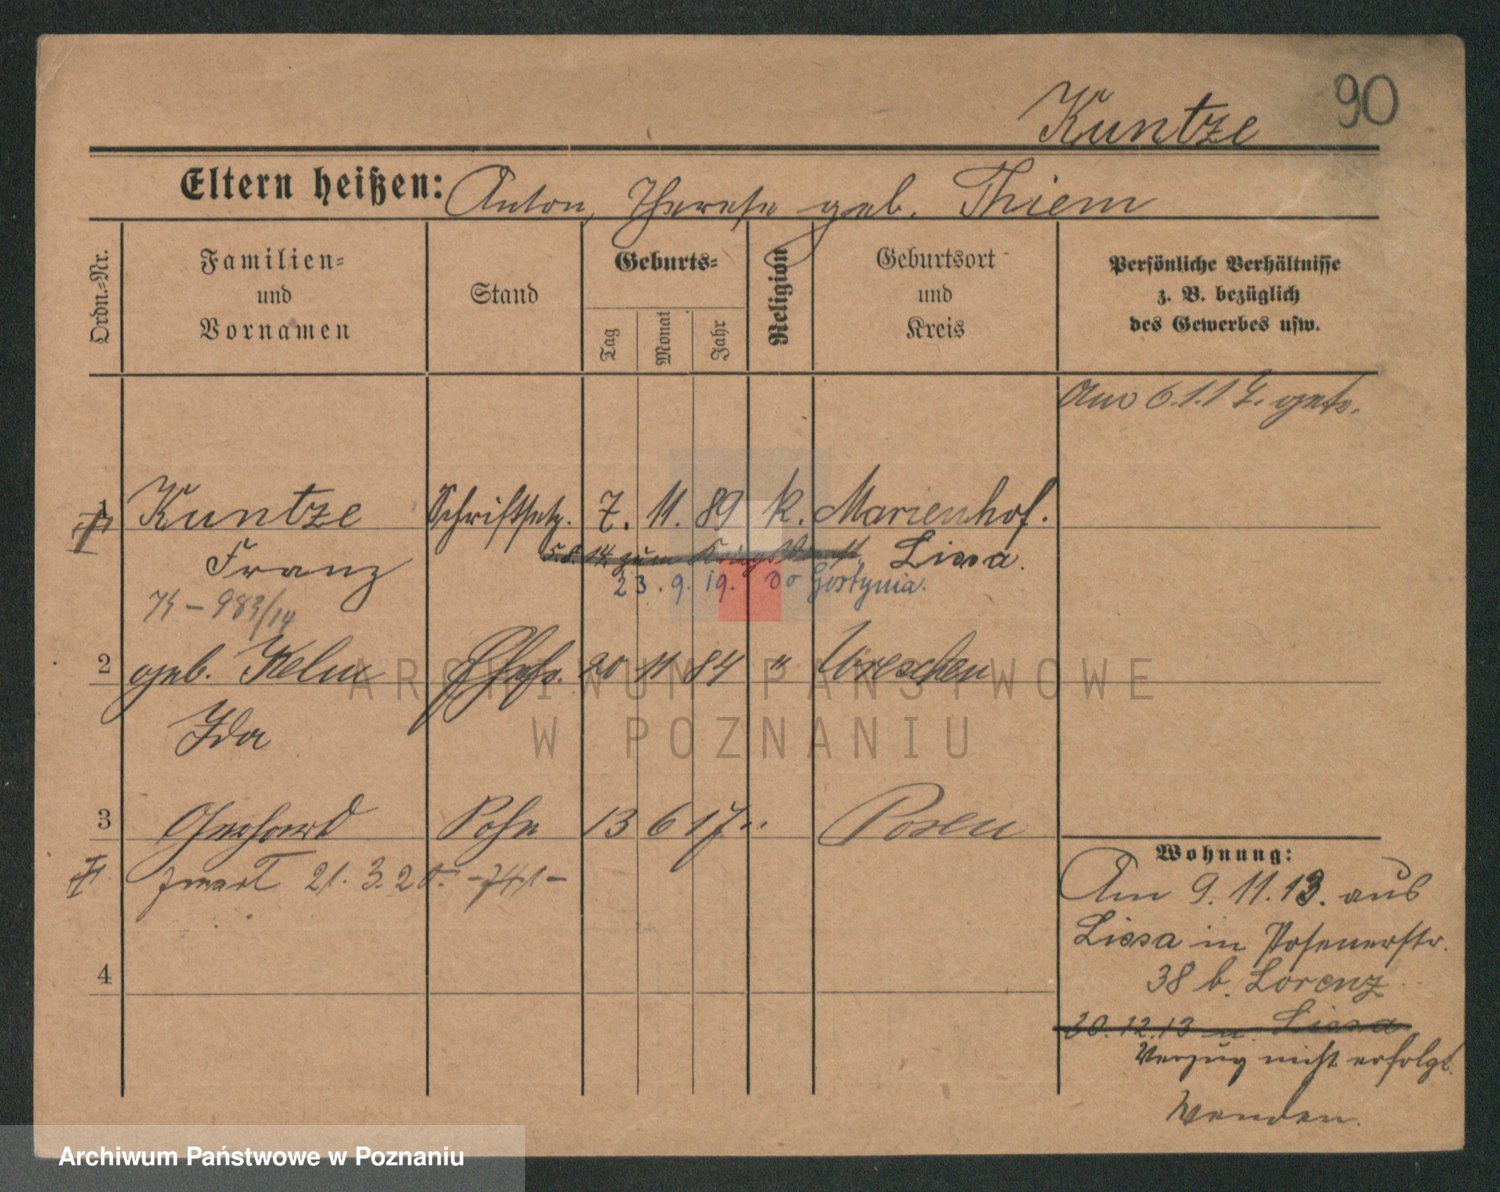 90
Kuntze
Eltern heißen: Anton, Therese geb. Thiem
Ordn.-Nr.
Familien-
und
Vornamen
Stand
Geburts-
Tag
Monat
Jahr
Religion
Geburtsort
und
Kreis
Persönliche Verhältnisse
z. B. bezüglich
des Gewerbes usw.
Am 6.1.17. getr.
1 Kuntze Schriftsetz. 7. 11. 89 k. Marienhof.
Franz 5.8.14 zum Kriegsdienst Lissa.
23.9.19. do Gostynia.
983/14
2 geb. Ehefr. 20 11 84 " Wreschen
Ida
3 Gerhard Sohn 13 6 17 " Posen
21.3.20. -741-
4
Wohnung:
Am 9.11.13. aus
Lissa in Posenerstr.
38 b. Lorenz
20.12.13 n. Lissa
Verzug nicht erfolgt.
Wenden.
ARCHIWUM PAŃSTWOWE
W POZNANIU
Archiwum Państwowe w Poznaniu